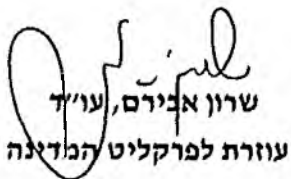 שרון אבירם, עו״ד
עוזרת לפרקליט המדינה